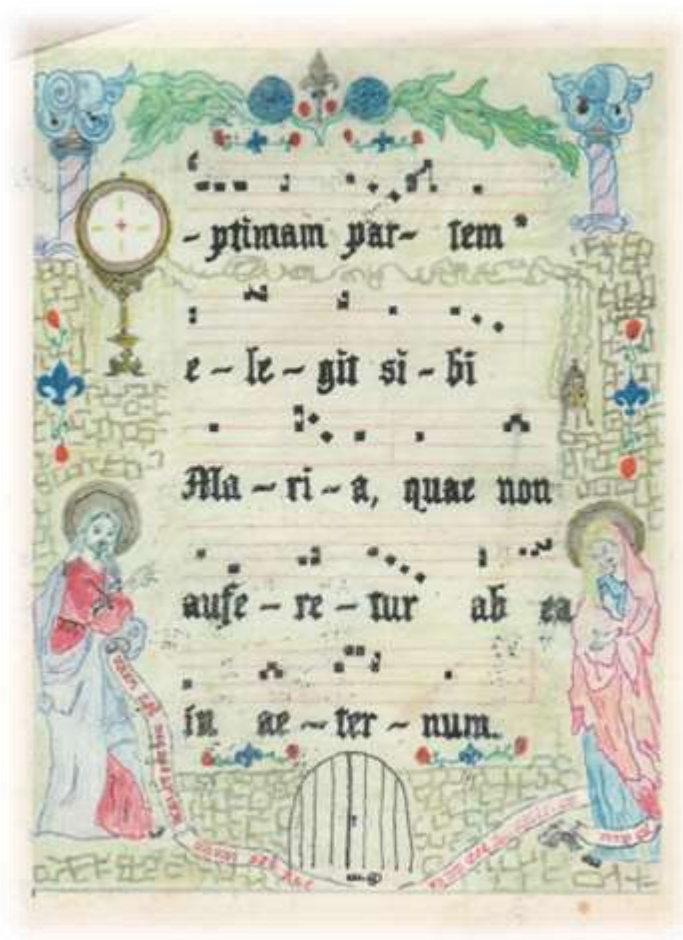 - ptimam par- tem
e - le - git si - bi
Ma - ri - a, quae non
aufe - re - tur ab ea
in ae - ter - num.